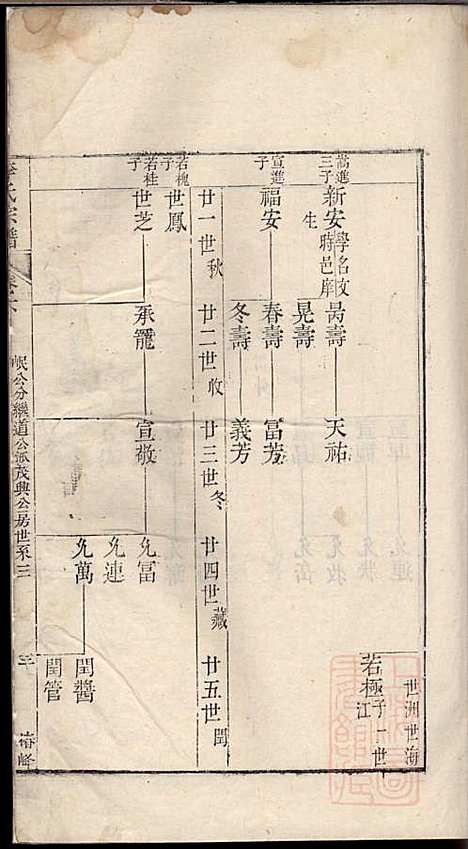 世洲世海
若極子一世
江
嵩進
三子
新安學名文
蒔邑庠
生
昺壽
天祐
晃壽
宣進
子
福安
春壽
富芳
冬壽
義芳
廿一世秋
廿二世收
廿三世冬
廿四世藏
廿五世閏
若槐
子
世鳳
若桂
子
世芝
承寵
宣敬
允富
允連
允萬
閏醬
閏管
氏宗譜
岷公分繼道公派茂興公房世系三
三
椿峰